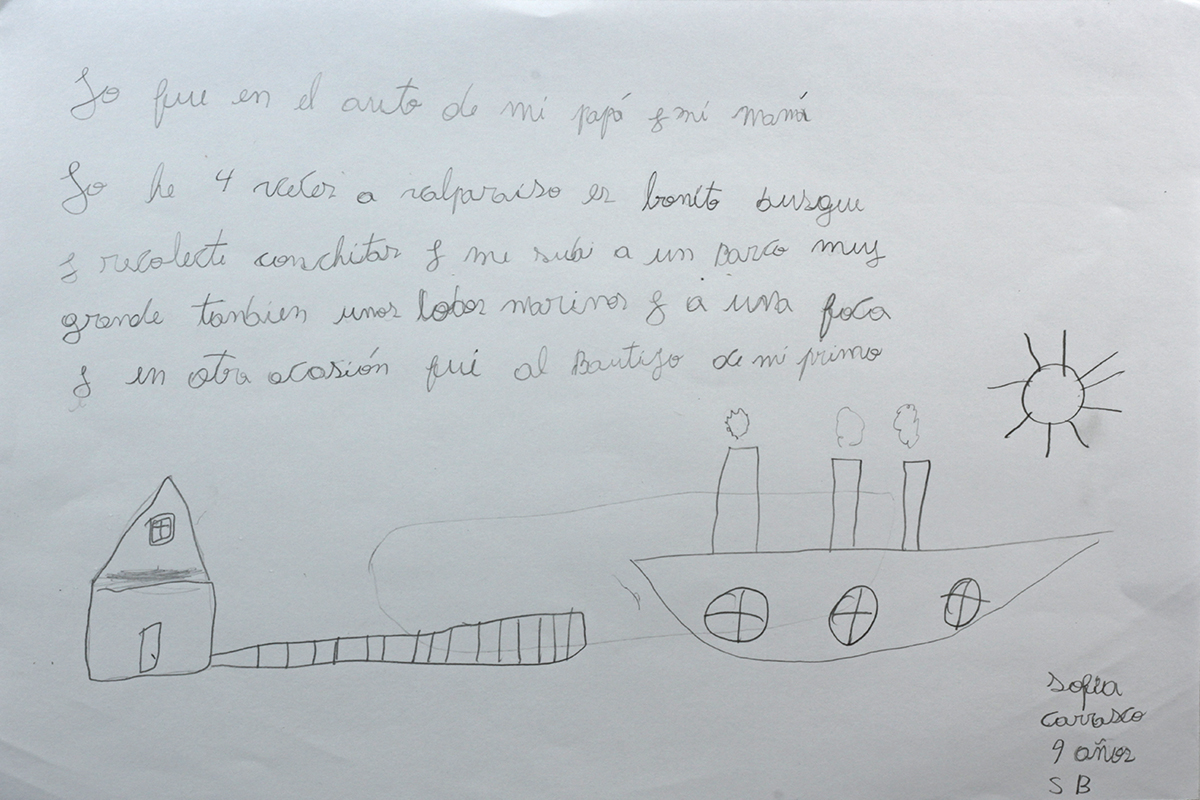 Yo fue en el auto de mi papá y mi mamá
Yo he 4 veces a valparaiso es bonito busque
y recolecte conchitas y me subi a un Barco muy
grande tanbien unos lobos marinos y a una foca
y en otra ocasión fui al Bautiso de mi primo
Sofia
Carrasco
9 años
5 B